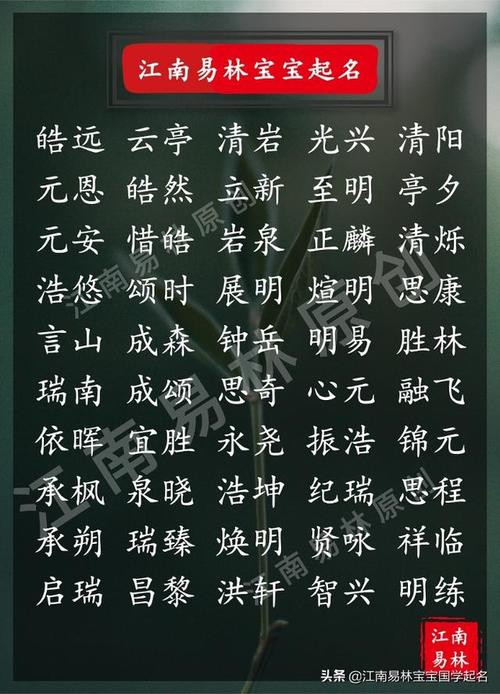 江南易林宝宝起名
皓远 云亭 清岩 光兴 清阳
元恩 皓然 立新 至明 亭夕
元安 惜皓 岩泉 正麟 清烁
浩悠 颂时 展明 煊明 思康
言山 成森 钟岳 明易 胜林
瑞南 成颂 思奇 心元 融飞
依晖 宜胜 永尧 振浩 锦元
承枫 泉晓 浩坤 纪瑞 思程
承朔 瑞臻 焕明 贤咏 祥临
启瑞 昌黎 洪轩 智兴 明练
江南易林原创
江南易林原创
江南易林原创
江南
易林
头条 @江南易林宝宝国学起名